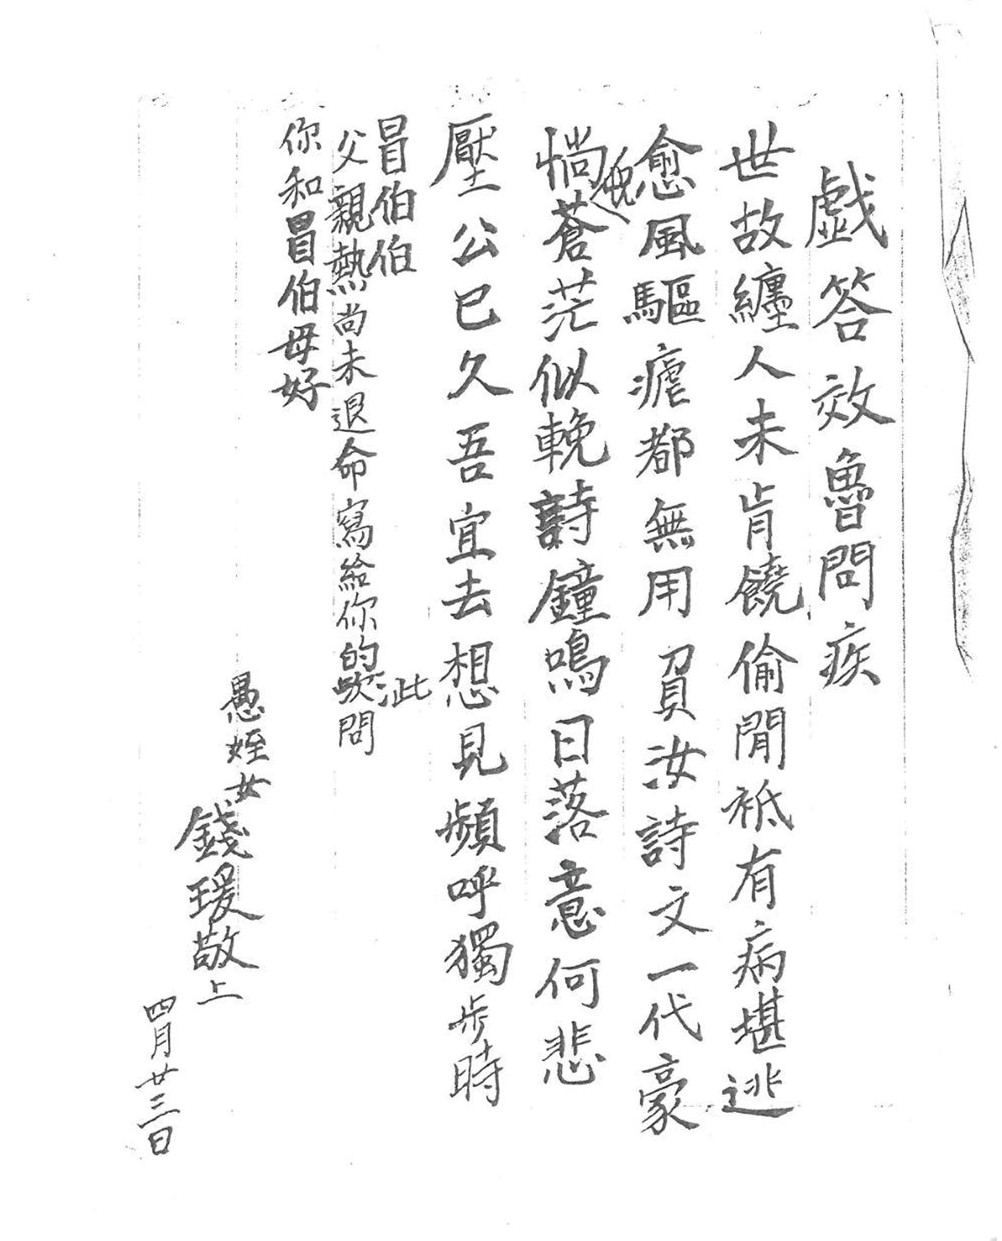 戯答效魯問疾
世故纏人未肯饒偷閒袛有病堪逃
愈風驅瘧都無用負汝詩文一代豪
惝蒼茫似輓詩鐘鳴日落意何悲
壓公已久吾宜去想見頻呼獨步時
冒伯伯
父親熱尚未退命寫給你的此問
你和冒伯母好
愚姪女
錢瑗敬上
四月廿三日